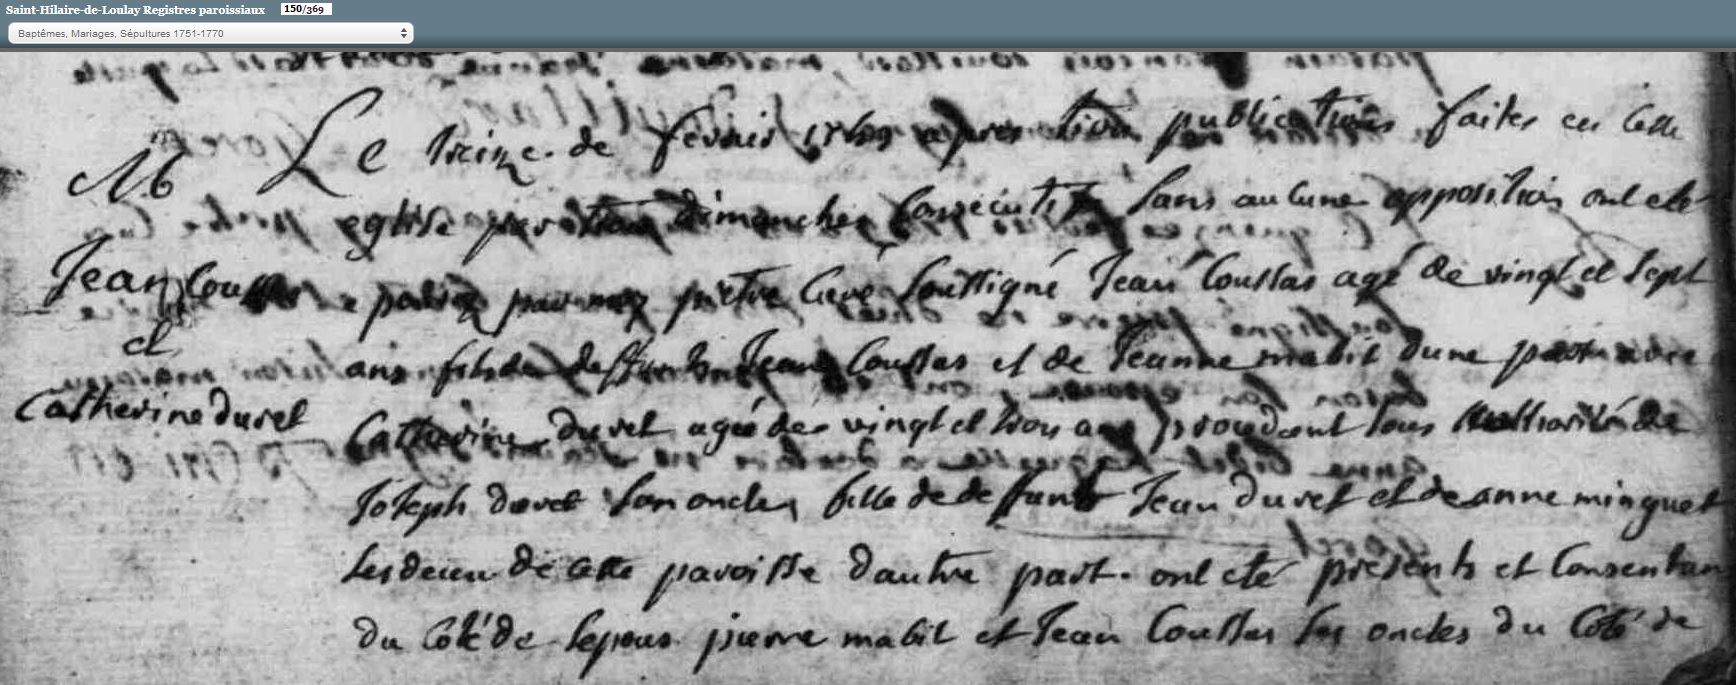 Saint-Hilaire-de-Loulay Registres paroissiaux 150/369
Baptêmes, Mariages, Sépultures 1751-1770
M
Jean Coussas
et
Catherine duret
Le treize de fevrier apres trois publications faites en cette
eglise par trois dimanches consecutifs sans aucune opposition ont ete
par moy pretre Curé soussigné Jean Coussas agé de vingt et sept
ans fils de deffunts Jean Coussas et de Jeanne mabit dune part
Catherine duret ageé de vingt et trois ans sous lauthorité de
Joseph duret son oncle, fille de deffunts Jean duret et de anne minguet
les deux de cette paroisse dautre part. ont eté presents et Consentans
du Coté de lepous pierre mabit et Jean Coussas ses oncles du Coté de